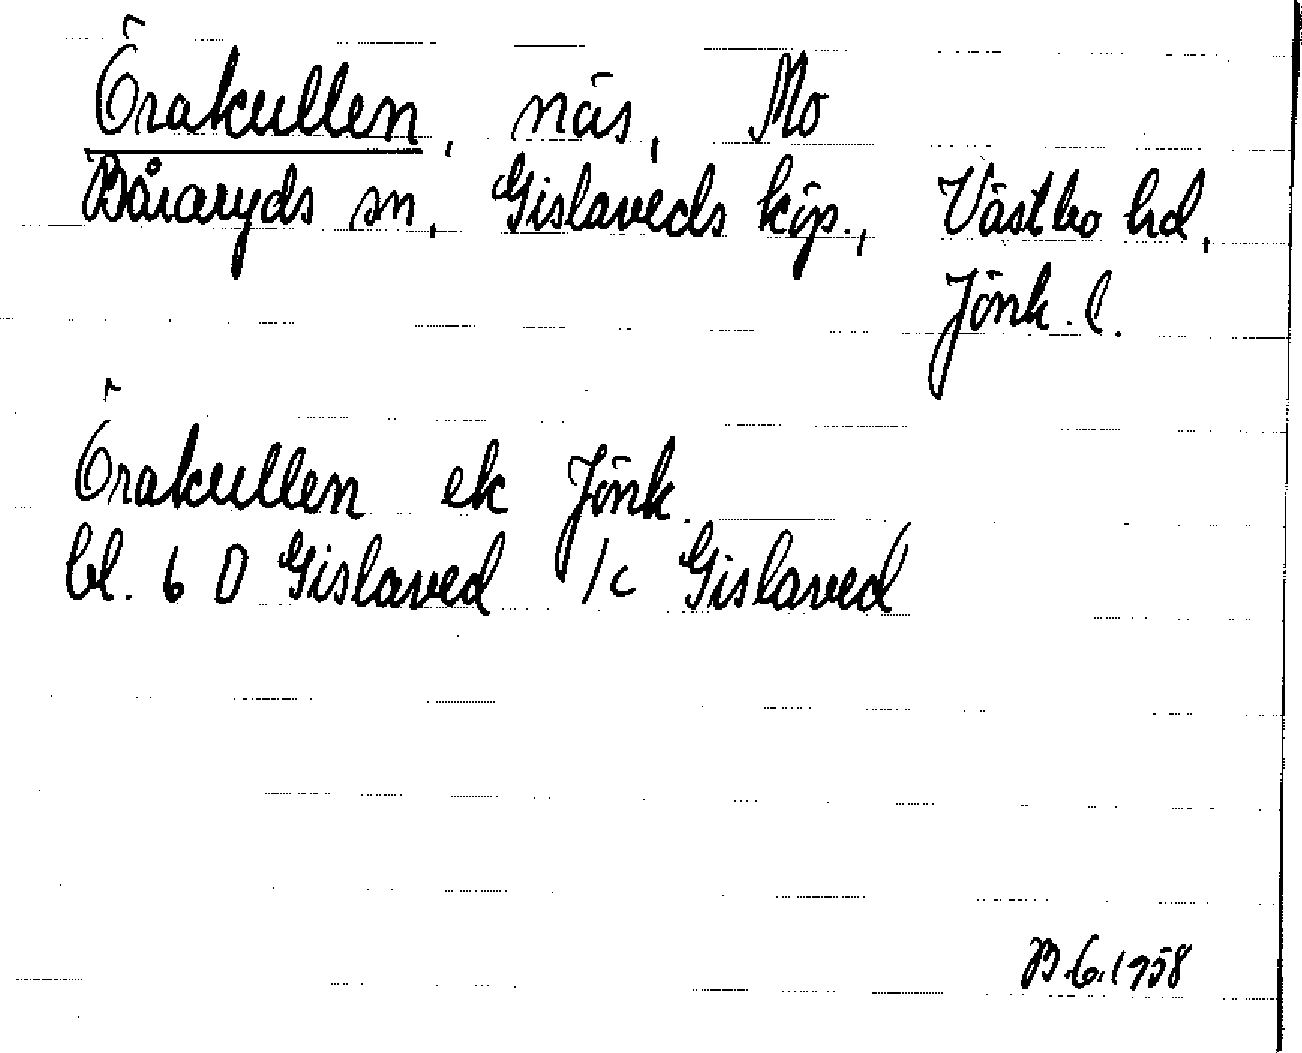 Örakullen, näs, Mo
Båraryds sn, Gislaveds köp., Västbo hd,
Jönk. l.
Örakullen ek Jönk.
bl. 6 D Gislaved 1c Gislaved
B.G. 1958